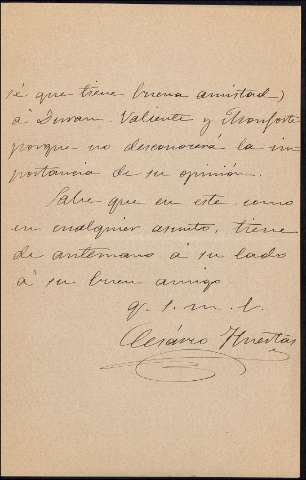 sé que tiene buena amistad)
á Durran. Valiente y Monforte
porque no desconocerá la im-
portancia de su opinión.
Sabe que en este como
en cualquier asunto, tiene
de antemano á su lado
á su buen amigo
q. s. m. b.
Cesáreo Huertas